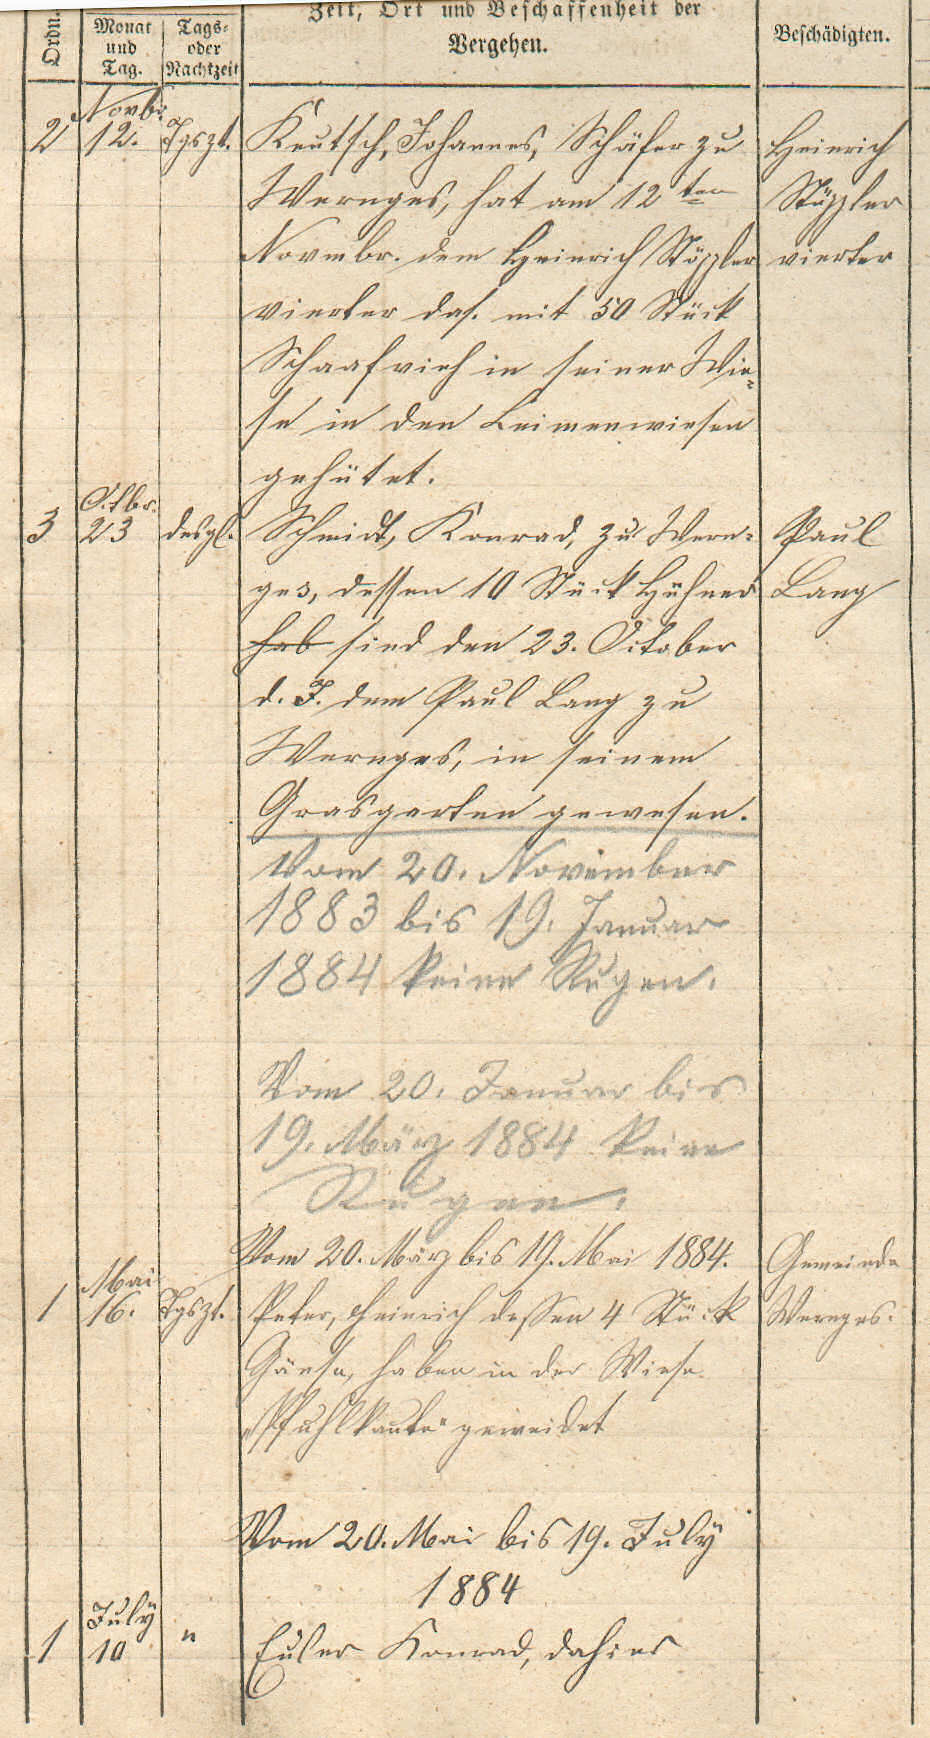 Ordn.
Monat
und
Tag.
Tags-
oder
Nachtzeit
Zeit, Ort und Beschaffenheit der
Vergehen.
Beschädigten.
Novbr.
2 12. Tgszt. Keutsch, Johannes, Schäfer zu Heinrich
Wernges, hat am 12ten Stöppler
Novembr. dem Heinrich Stöppler vierter
vierter das. mit 50 Stück
Schaafvieh in seiner Wie-
se in den Leimenwiesen
gehütet.
Octbr.
3 23 desgl. Schmidt, Konrad, zu Wern- Paul
ges, dessen 10 Stück Hühner Lang
hab sind den 23. October
d. J. dem Paul Lang zu
Wernges, in seinem
Grasgarten gewesen.
Vom 20. November
1883 bis 19. Januar
1884 keine Rugen.
Vom 20. Januar bis
19. März 1884 keine
Rugen.
Vom 20. März bis 19. Mai 1884. Gemeinde
Mai
1 16. Tgszt. Peter, Heinrich dessen 4 Stück Wernges.
Gänse, haben in der Wiese
"Pfuhlkaute" geweidet
Vom 20. Mai bis 19. July
1884
July
1 10 " Euler Konrad, dahier